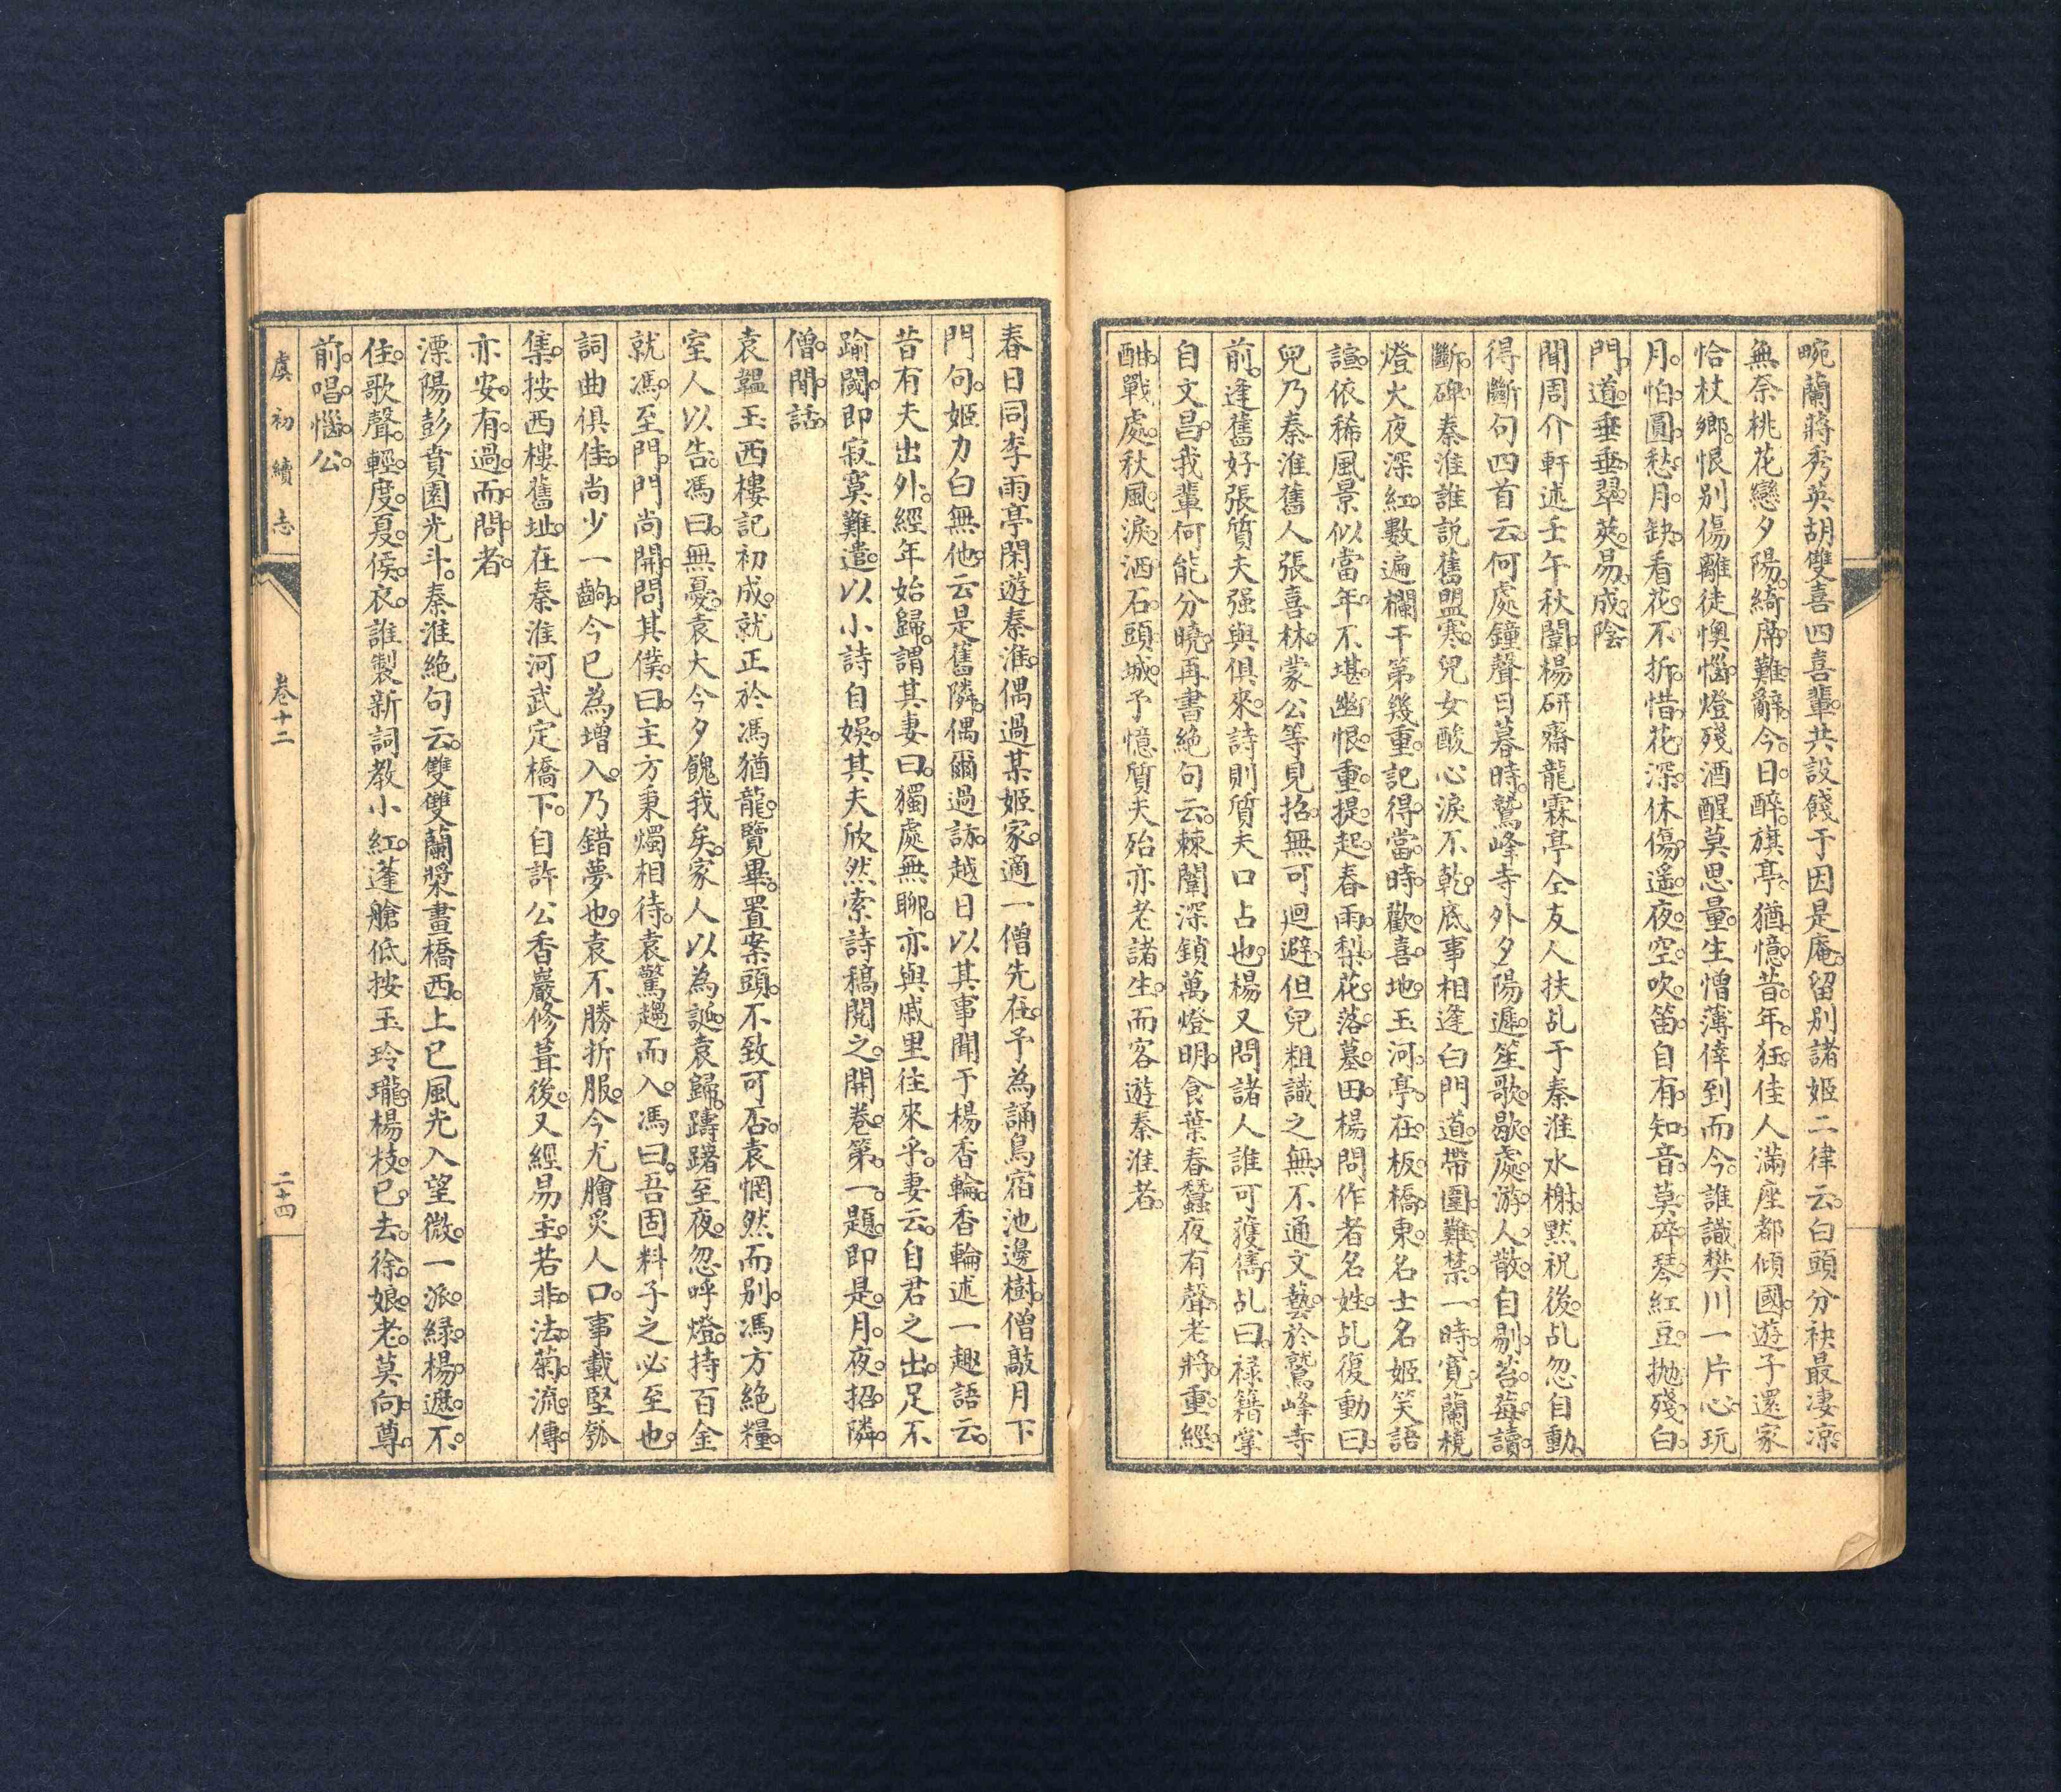 畹蘭蔣秀英胡雙喜四喜輩共設餞于因是庵留別諸姬二律云白頭分袂最凄涼
無奈桃花戀夕陽綺席難辭今日醉旗亭猶憶昔年狂佳人滿座都傾國遊子還家
恰杖鄉恨別傷離徒懊惱燈殘酒醒莫思量生憎薄倖到而今誰識樊川一片心玩
月怕圓愁月缺看花不折惜花深休傷遙夜空吹笛自有知音莫碎琴紅豆拋殘白
門道垂垂翠莢易成陰
聞周介軒述壬午秋闈楊研齋龍霖亭仝友人扶乩于秦淮水榭默祝後乩忽自動
得斷句四首云何處鐘聲日暮時鷲峰寺外夕陽遲笙歌歇處游人散自剔苔莓讀
斷碑秦淮誰說舊盟寒兒女酸心淚不乾底事相逢白門道帶圍難禁一時寬蘭橈
燈火夜深紅數遍欄干第幾重記得當時歡喜地玉河亭在板橋東名士名姬笑語
諠依稀風景似當年不堪幽恨重提起春雨梨花落墓田楊問作者名姓乩復動曰
兒乃秦淮舊人張喜林蒙公等見招無可迴避但兒粗識之無不通文藝於鷲峰寺
前逢舊好張質夫强與俱來詩則質夫口占也楊又問諸人誰可獲儁乩曰祿籍掌
自文昌我輩何能分曉再書絕句云棘闈深鎖萬燈明食葉春蠶夜有聲老將重經
酣戰處秋風淚洒石頭城予憶質夫殆亦老諸生而客遊秦淮者
春日同李雨亭閑遊秦淮偶過某姬家適一僧先在予為誦鳥宿池邊樹僧敲月下
門句姬力白無他云是舊隣偶爾過訪越日以其事聞于楊香輪香輪述一趣語云
昔有夫出外經年始歸謂其妻曰獨處無聊亦與戚里往來乎妻云自君之出足不
踰閾即寂寞難遣以小詩自娛其夫欣然索詩稿閱之開卷第一題即是月夜招隣
僧閒話
袁韞玉西樓記初成就正於馮猶龍覽畢置案頭不致可否袁惘然而别馮方絕糧
室人以告馮曰無憂袁大今夕餽我矣家人以為誕袁歸躊躇至夜忽呼燈持百金
就馮至門門尚開問其僕曰主方秉燭相待袁驚趨而入馮曰吾固料子之必至也
詞曲俱佳尚少一齣今已為增入乃錯夢也袁不勝折服今尤膾炙人口事載堅瓠
集按西樓舊址在秦淮河武定橋下自許公香巖修葺後又經易主若非法菊流傳
亦安有過而問者
溧陽彭賁園光斗秦淮絕句云雙雙蘭槳畫橋西上巳風光入望微一派緑楊遮不
住歌聲輕度夏侯衣誰製新詞教小紅蓬艙低按玉玲瓏楊枝已去徐娘老莫向尊
前唱惱公
虞初續志
卷十二
二十四